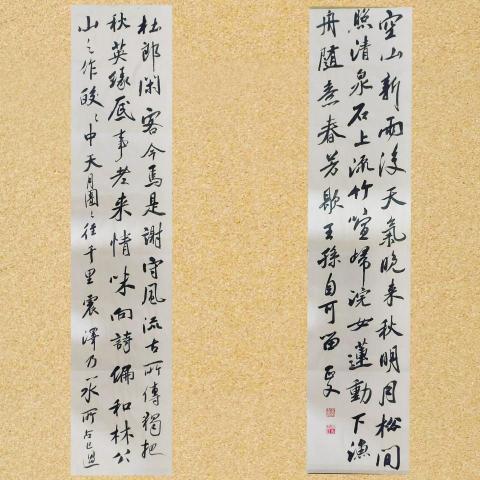 空山新雨後天氣晚来秋明月松間
照清泉石上流竹喧歸浣女蓮動下漁
舟隨意春芳歇王孫自可留
杜郎閑客今焉是謝守風流古所傳獨把
秋英緣底事老来情味向詩偏和林公
山之作皎々中天月團々徑千里震澤乃一水所占已過